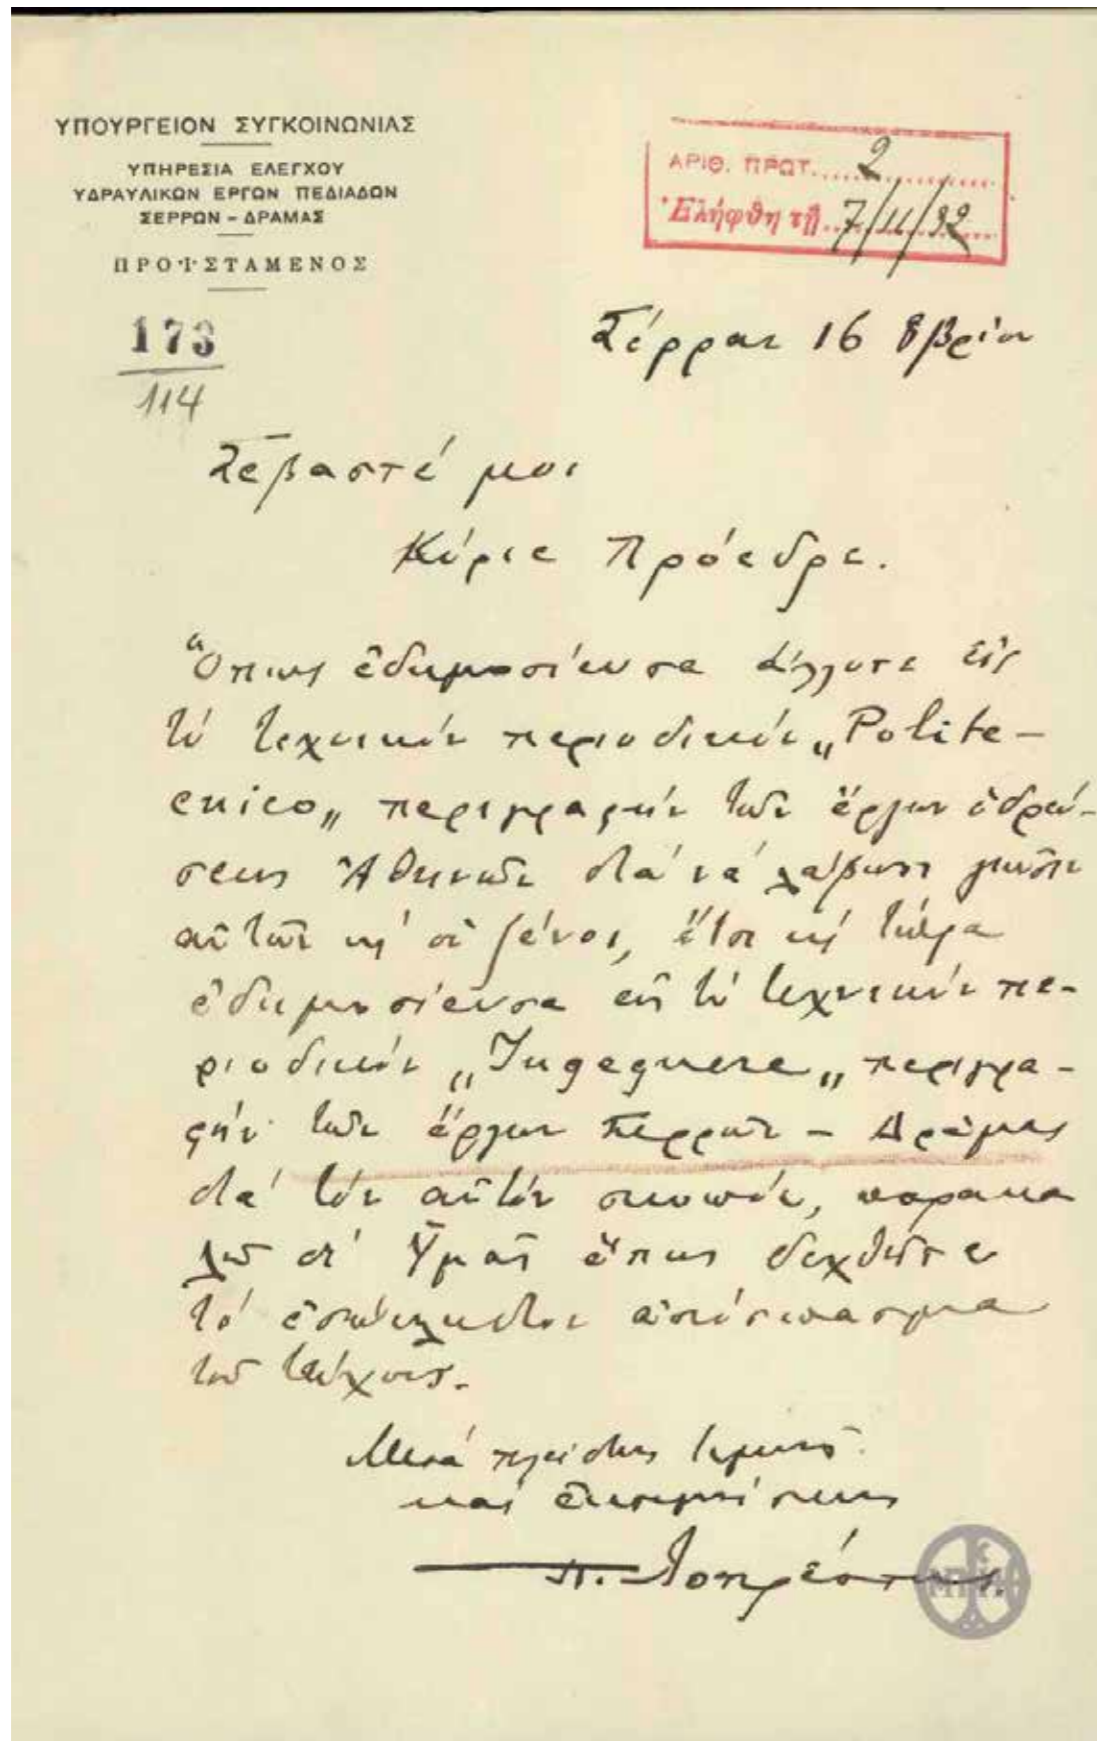 ΥΠΟΥΡΓΕΙΟΝ ΣΥΓΚΟΙΝΩΝΙΑΣ
ΥΠΗΡΕΣΙΑ ΕΛΕΓΧΟΥ
ΥΔΡΑΥΛΙΚΩΝ ΕΡΓΩΝ ΠΕΔΙΑΔΩΝ
ΣΕΡΡΩΝ – ΔΡΑΜΑΣ
ΠΡΟΪΣΤΑΜΕΝΟΣ
173
114
ΑΡΙΘ. ΠΡΩΤ. 2
Ἐλήφθη τῇ 7/11/32
Σέρραι 16 8βρίου
Σεβαστέ μοι
Κύριε Πρόεδρε.
Ὅπως ἐδημοσίευσα ἄλλοτε εἰς
τὸ τεχνικὸν περιοδικὸν „Polite-
cnico„ περιγραφὴν τῶν ἔργων ὑδρεύ-
σεως Ἀθηνῶν διὰ νὰ λάβωσι γνῶσιν
αὐτῶν κ' οἱ ξένοι, ἔτσι κὴ τώρα
ἐδημοσίευσα εἰς τὸ τεχνικὸν πε-
ριοδικὸν „Ingegnere„ περιγρα-
φὴν τῶν ἔργων Σερρῶν – Δράμας
διὰ τὸν αὐτὸν σκοπόν, παρακα
λῶ δὲ Ὑμᾶς ὅπως δεχθῆτε
τὸ ἐσώκλειστον ἀπόσπασμα
τοῦ τεύχους.
Μετὰ πλείστης τιμῆς
καὶ ἐκτιμήσεως
ΜΠ